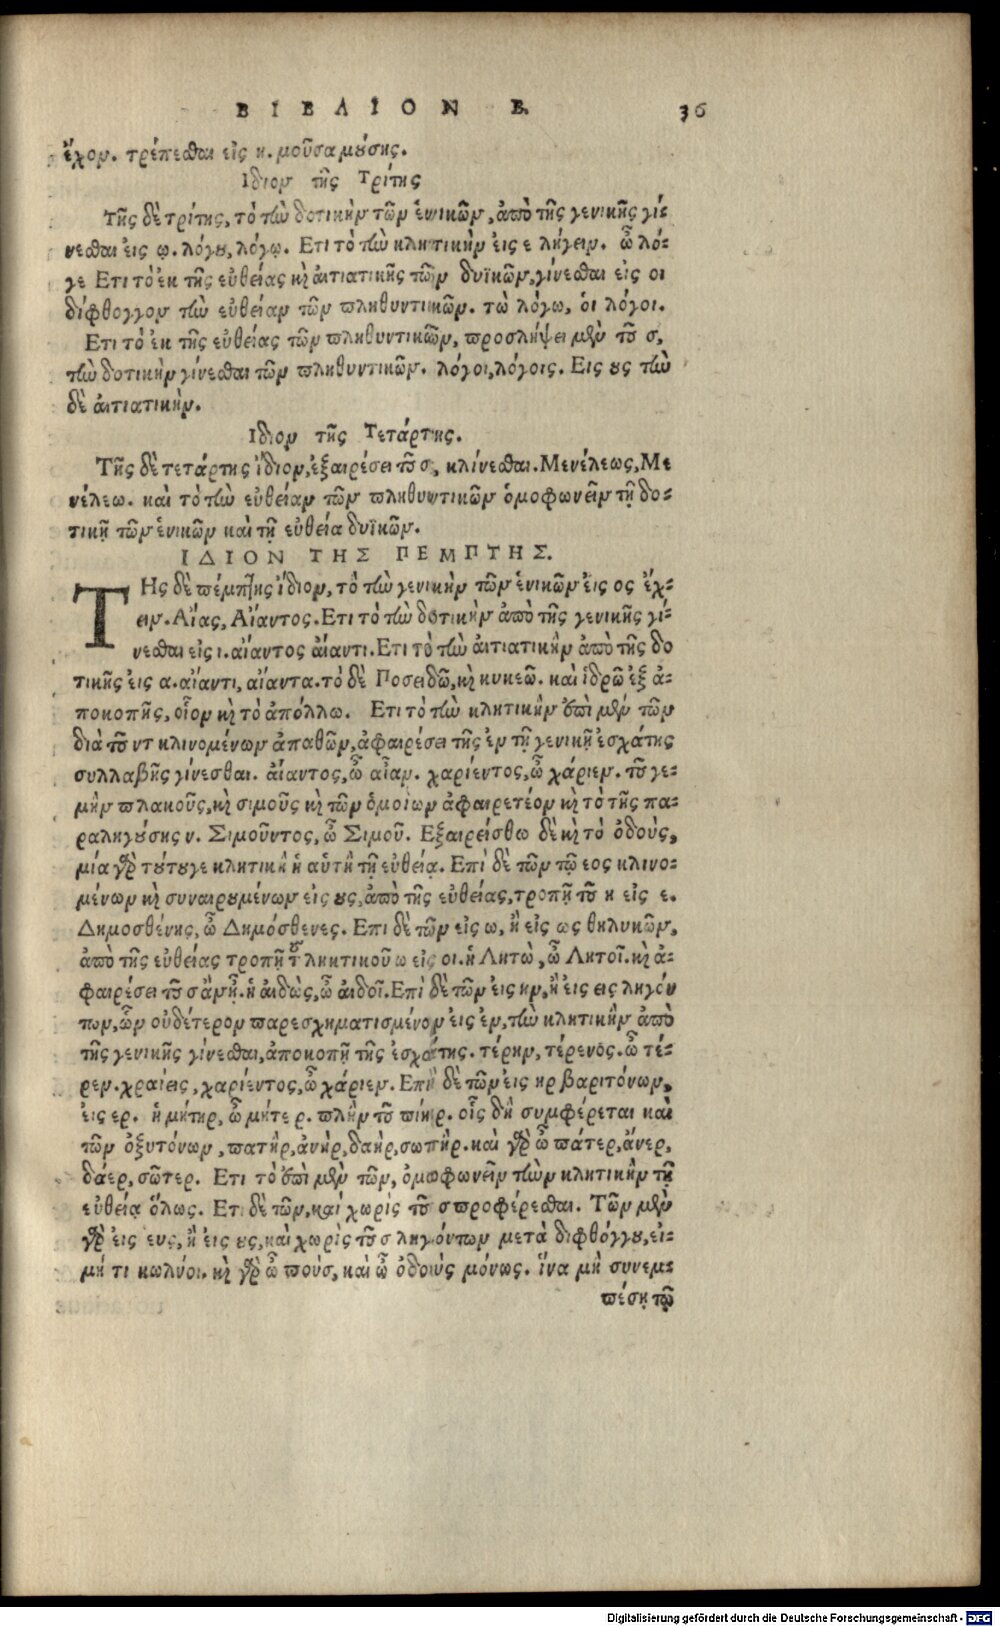 ΒΙΒΛΙΟΝ Β. 36
ἔχον. τρέπεσθαι εἰς η. μοῦσα μούσης.
Ιδιον τῆς Τρίτης
Τῆς δὲ τρίτης, τὸ τὴν δοτικὴν τῶν ἑνικῶν, ἀπὸ τῆς γενικῆς γί-
νεσθαι εἰς ῳ. λόγου, λόγῳ. Ετι τὸ τὴν κλητικὴν εἰς ε λήγειν. ὦ λό-
γε Ετι τὸ ἐκ τῆς εὐθείας καὶ αἰτιατικῆς τῶν δυϊκῶν, γίνεσθαι εἰς οι
δίφθογγον τὴν εὐθεῖαν τῶν πληθυντικῶν. τὼ λόγω, οἱ λόγοι.
Ετι τὸ ἐκ τῆς εὐθείας τῶν πληθυντικῶν, προσλήψει μὲν τοῦ σ,
τὴν δοτικὴν γίνεσθαι τῶν πληθυντικῶν. λόγοι, λόγοις. Εις ους τὴν
δὲ αἰτιατικήν.
Ιδιον τῆς Τετάρτης.
Τῆς δὲ τετάρτης ἴδιον, ἐξαιρέσει τοῦ σ, κλίνεσθαι. Μενέλεως, Με
νέλεω. καὶ τὸ τὴν εὐθεῖαν τῶν πληθυντικῶν ὁμοφωνεῖν τῇ δο-
τικῇ τῶν ἑνικῶν καὶ τῇ εὐθεία δυϊκῶν.
ΙΔΙΟΝ ΤΗΣ ΠΕΜΠΤΗΣ.
ΤΗς δὲ πέμπτης ἴδιον, τὸ τὴν γενικὴν τῶν ἑνικῶν εἰς ος ἔχ-
ειν. Αἴας, Αἴαντος. Ετι τὸ τὴν δοτικὴν ἀπὸ τῆς γενικῆς γί-
νεσθαι εἰς ι. αἴαντος αἴαντι. Ετι τὸ τὴν αἰτιατικὴν ἀπὸ τῆς δο
τικῆς εις α. αἴαντι, αἴαντα. τὸ δὲ Ποσειδῶ, καὶ κυκεῶ. καὶ ἱδρῶ ἐξ ἀ-
ποκοπῆς, οἷον καὶ τὸ ἀπόλλω. Ετι τὸ τὴν κλητικὴν ἐπὶ μὲν τῶν
διὰ τοῦ ντ κλινομένων ἀπαθῶν, ἀφαιρέσει τῆς ἐν τῇ γενικῇ ἐσχάτης
συλλαβῆς γίνεσθαι. αἴαντος, ὦ αἶαν. χαρίεντος, ὦ χάριεν. τοῦ γε-
μὴν πλακοῦς, καὶ σιμοῦς καὶ τῶν ὁμοίων ἀφαιρετέον καὶ τὸ τῆς πα-
ραληγούσης ν. Σιμοῦντος, ὦ Σιμοῦ. Εξαιρείσθω δὲ καὶ τὸ ὀδοὺς,
μία γὰρ τούτου γε κλητικὴ ἡ αὐτὴ τῇ εὐθείᾳ. Επὶ δὲ τῶν τῷ εος κλινο-
μένων καὶ συναιρουμένων εἰς ους, ἀπὸ τῆς εὐθείας, τροπῇ τοῦ η εἰς ε.
Δημοσθένης, ὦ Δημόσθενες. Επι δὲ τῶν εἰς ω, ἢ εἰς ως θηλυκῶν,
ἀπὸ τῆς εὐθείας τροπῇ τοῦ ληκτικοῦ ω εἰς οι. ἡ Λητὼ, ὦ Λητοῖ. καὶ ἀ-
φαιρέσει τοῦ σ ἂν ᾖ. ἡ αἰδὼς, ὦ αἰδοῖ. Επὶ δὲ τῶν εἰς ην, ἢ εἰς εις ληγόν
των, ὧν οὐδέτερον παρεσχηματισμένον εἰς εν, τὴν κλητικὴν ἀπὸ
τῆς γενικῆς γίνεσθαι, ἀποκοπῇ τῆς ἐσχάτης. τέρην, τέρενος. ὦ τέ-
ρεν. χραίεις, χαρίεντος, ὦ χάριεν. Επὶ δὲ τῶν εἰς ηρ βαριτόνων,
εἰς ερ. ἡ μήτηρ, ὦ μῆτερ. πλὴν τοῦ πίηρ. οἷς δὴ συμφέρεται καὶ
τῶν ὀξυτόνων, πατὴρ, ἀνὴρ, δαὴρ, σωτὴρ. καὶ γὰρ ὦ πάτερ, ἄνερ,
δάερ, σῶτερ. Ετι τὸ ἐπὶ μὲν τῶν, ὁμοφωνεῖν τὴν κλητικὴν τῇ
εὐθείᾳ ὅλως. Ετι δὲ τῶν, καὶ χωρὶς τοῦ σ προφέρεσθαι. Τῶν μὲν
γὰρ εἰς ευς, ἢ εἰς ους, καὶ χωρὶς τοῦ σ ληγόντων μετὰ διφθόγγου, εἰ-
μή τι κωλύοι. καὶ γὰρ ὦ ποὺς, καὶ ὦ ὀδοὺς μόνως. ἵνα μὴ συνεμ-
πέσῃ τῷ
Digitalisierung gefördert durch die Deutsche Forschungsgemeinschaft - DFG